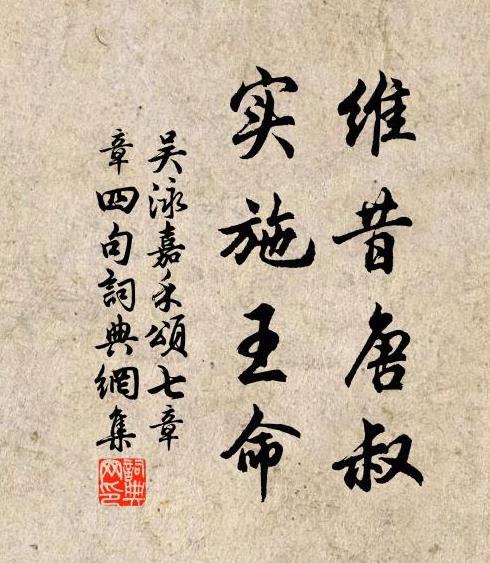 维昔唐叔
实施王命
吴泳嘉禾頌七章
章四句詞典網集
詞典网印